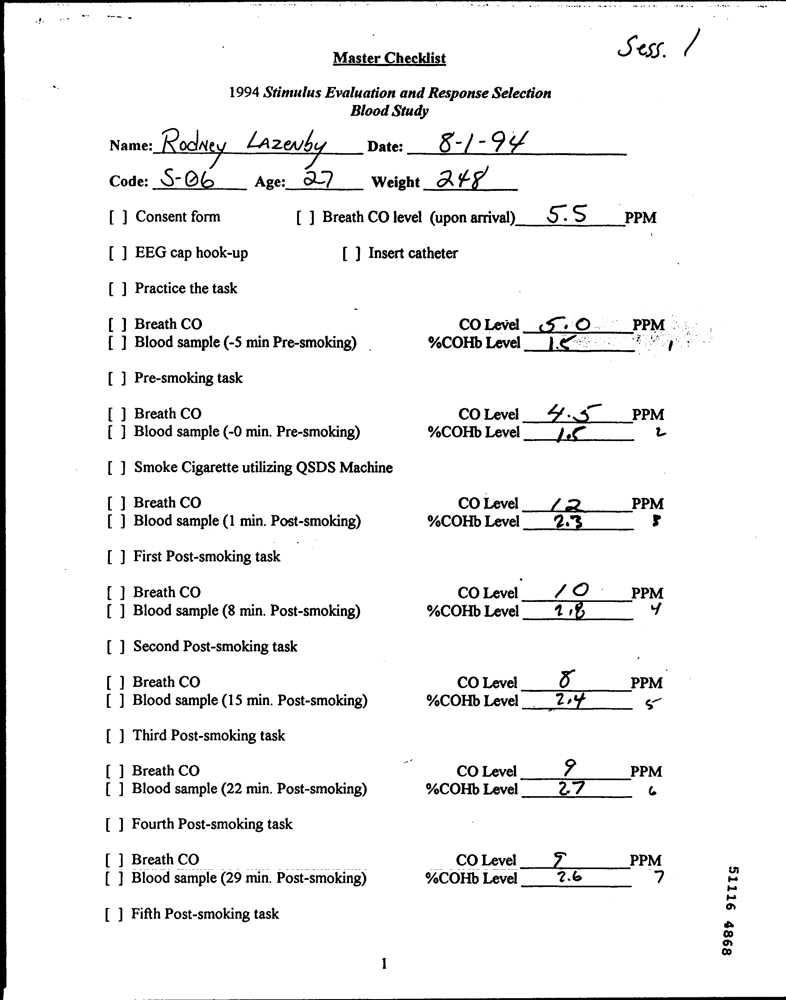 Sess. 1
Master Checklist
1994 Stimulus Evaluation and Response Selection
Blood Study
Name: Rodney Lazenby Date: 8-1-94
Code: S-06 Age: 27 Weight 248
[ ] Consent form [ ] Breath CO level (upon arrival) 5.5 PPM
[ ] EEG cap hook-up [ ] Insert catheter
[ ] Practice the task
[ ] Breath CO CO Level 5.0 PPM
[ ] Blood sample (-5 min Pre-smoking) %COHb Level 1.5 1
[ ] Pre-smoking task
[ ] Breath CO CO Level 4.5 PPM
[ ] Blood sample (-0 min. Pre-smoking) %COHb Level 1.5 2
[ ] Smoke Cigarette utilizing QSDS Machine
[ ] Breath CO CO Level 12 PPM
[ ] Blood sample (1 min. Post-smoking) %COHb Level 2.3 3
[ ] First Post-smoking task
[ ] Breath CO CO Level 10 PPM
[ ] Blood sample (8 min. Post-smoking) %COHb Level 4
[ ] Second Post-smoking task
[ ] Breath CO CO Level 8 PPM
[ ] Blood sample (15 min. Post-smoking) %COHb Level 2.4 5
[ ] Third Post-smoking task
[ ] Breath CO CO Level 9 PPM
[ ] Blood sample (22 min. Post-smoking) %COHb Level 2.7 6
[ ] Fourth Post-smoking task
[ ] Breath CO CO Level PPM
[ ] Blood sample (29 min. Post-smoking) %COHb Level 2.6 7
[ ] Fifth Post-smoking task
51116 4868
1